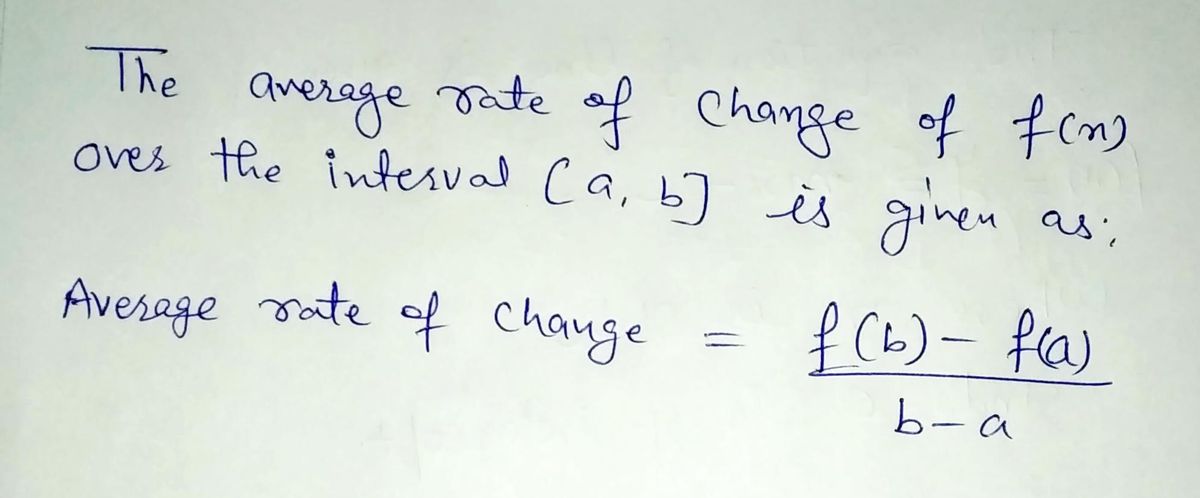 The average rate of change of f(n)
over the interval [a, b] is given as:
Average rate of change = f(b) - f(a)
b-a